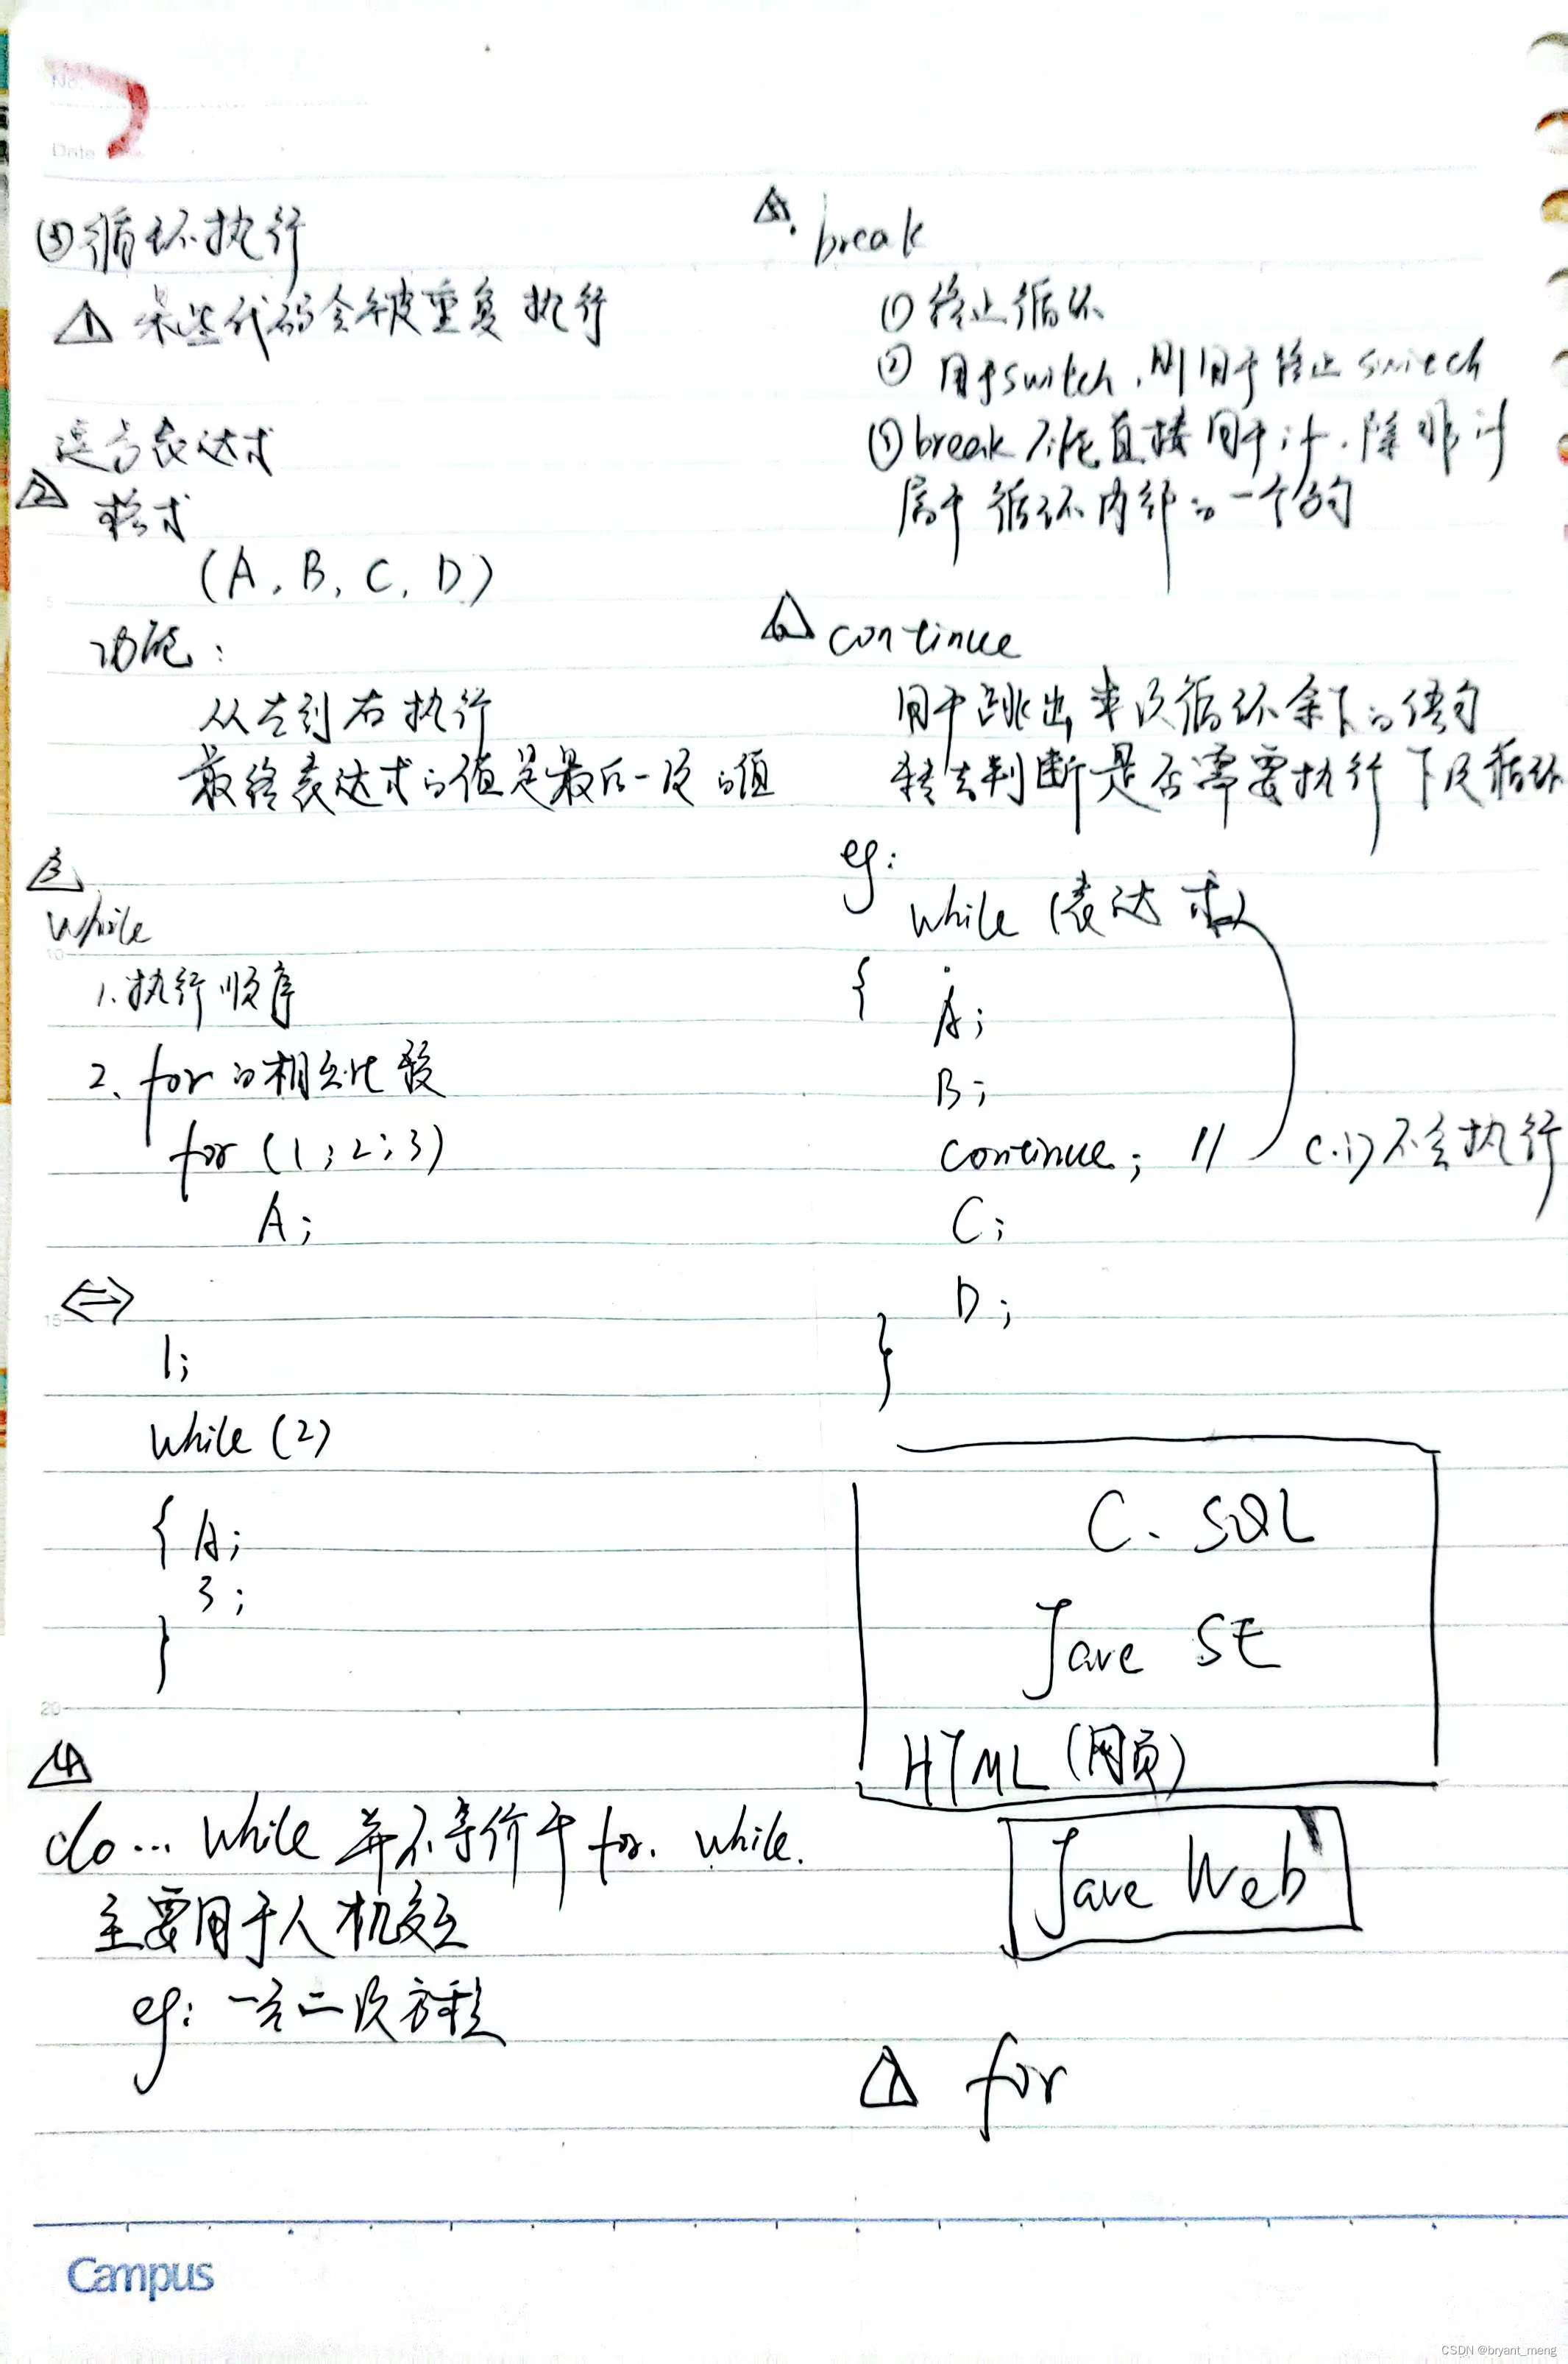 No.
Date
③循环执行
△1 某些代码会被重复执行
逗号表达式
△2 格式
(A, B, C, D)
功能:
从左到右执行
最终表达式的值是最后一项的值
△3
while
1.执行顺序
2、for的相互比较
for (1;2;3)
A;
<=>
1;
while (2)
{ A;
3;
}
△4
do... while 并不等价于 for. while.
主要用于人机交互
eg: 一元二次方程
△5. break
① 终止循环
② 用于switch,则用于终止 switch
③ break 不能直接用于if,除非if
属于循环内部的一个句
△6 continue
用于跳出本次循环余下的语句
转去判断是否需要执行下次循环
eg:
while (表达式)
{ A;
B;
continue; // C.D不会执行
C;
D;
}
C. SQL
Jave SE
HTML (网页)
Jave Web
△1 for
Campus
CSDN @bryant_meng